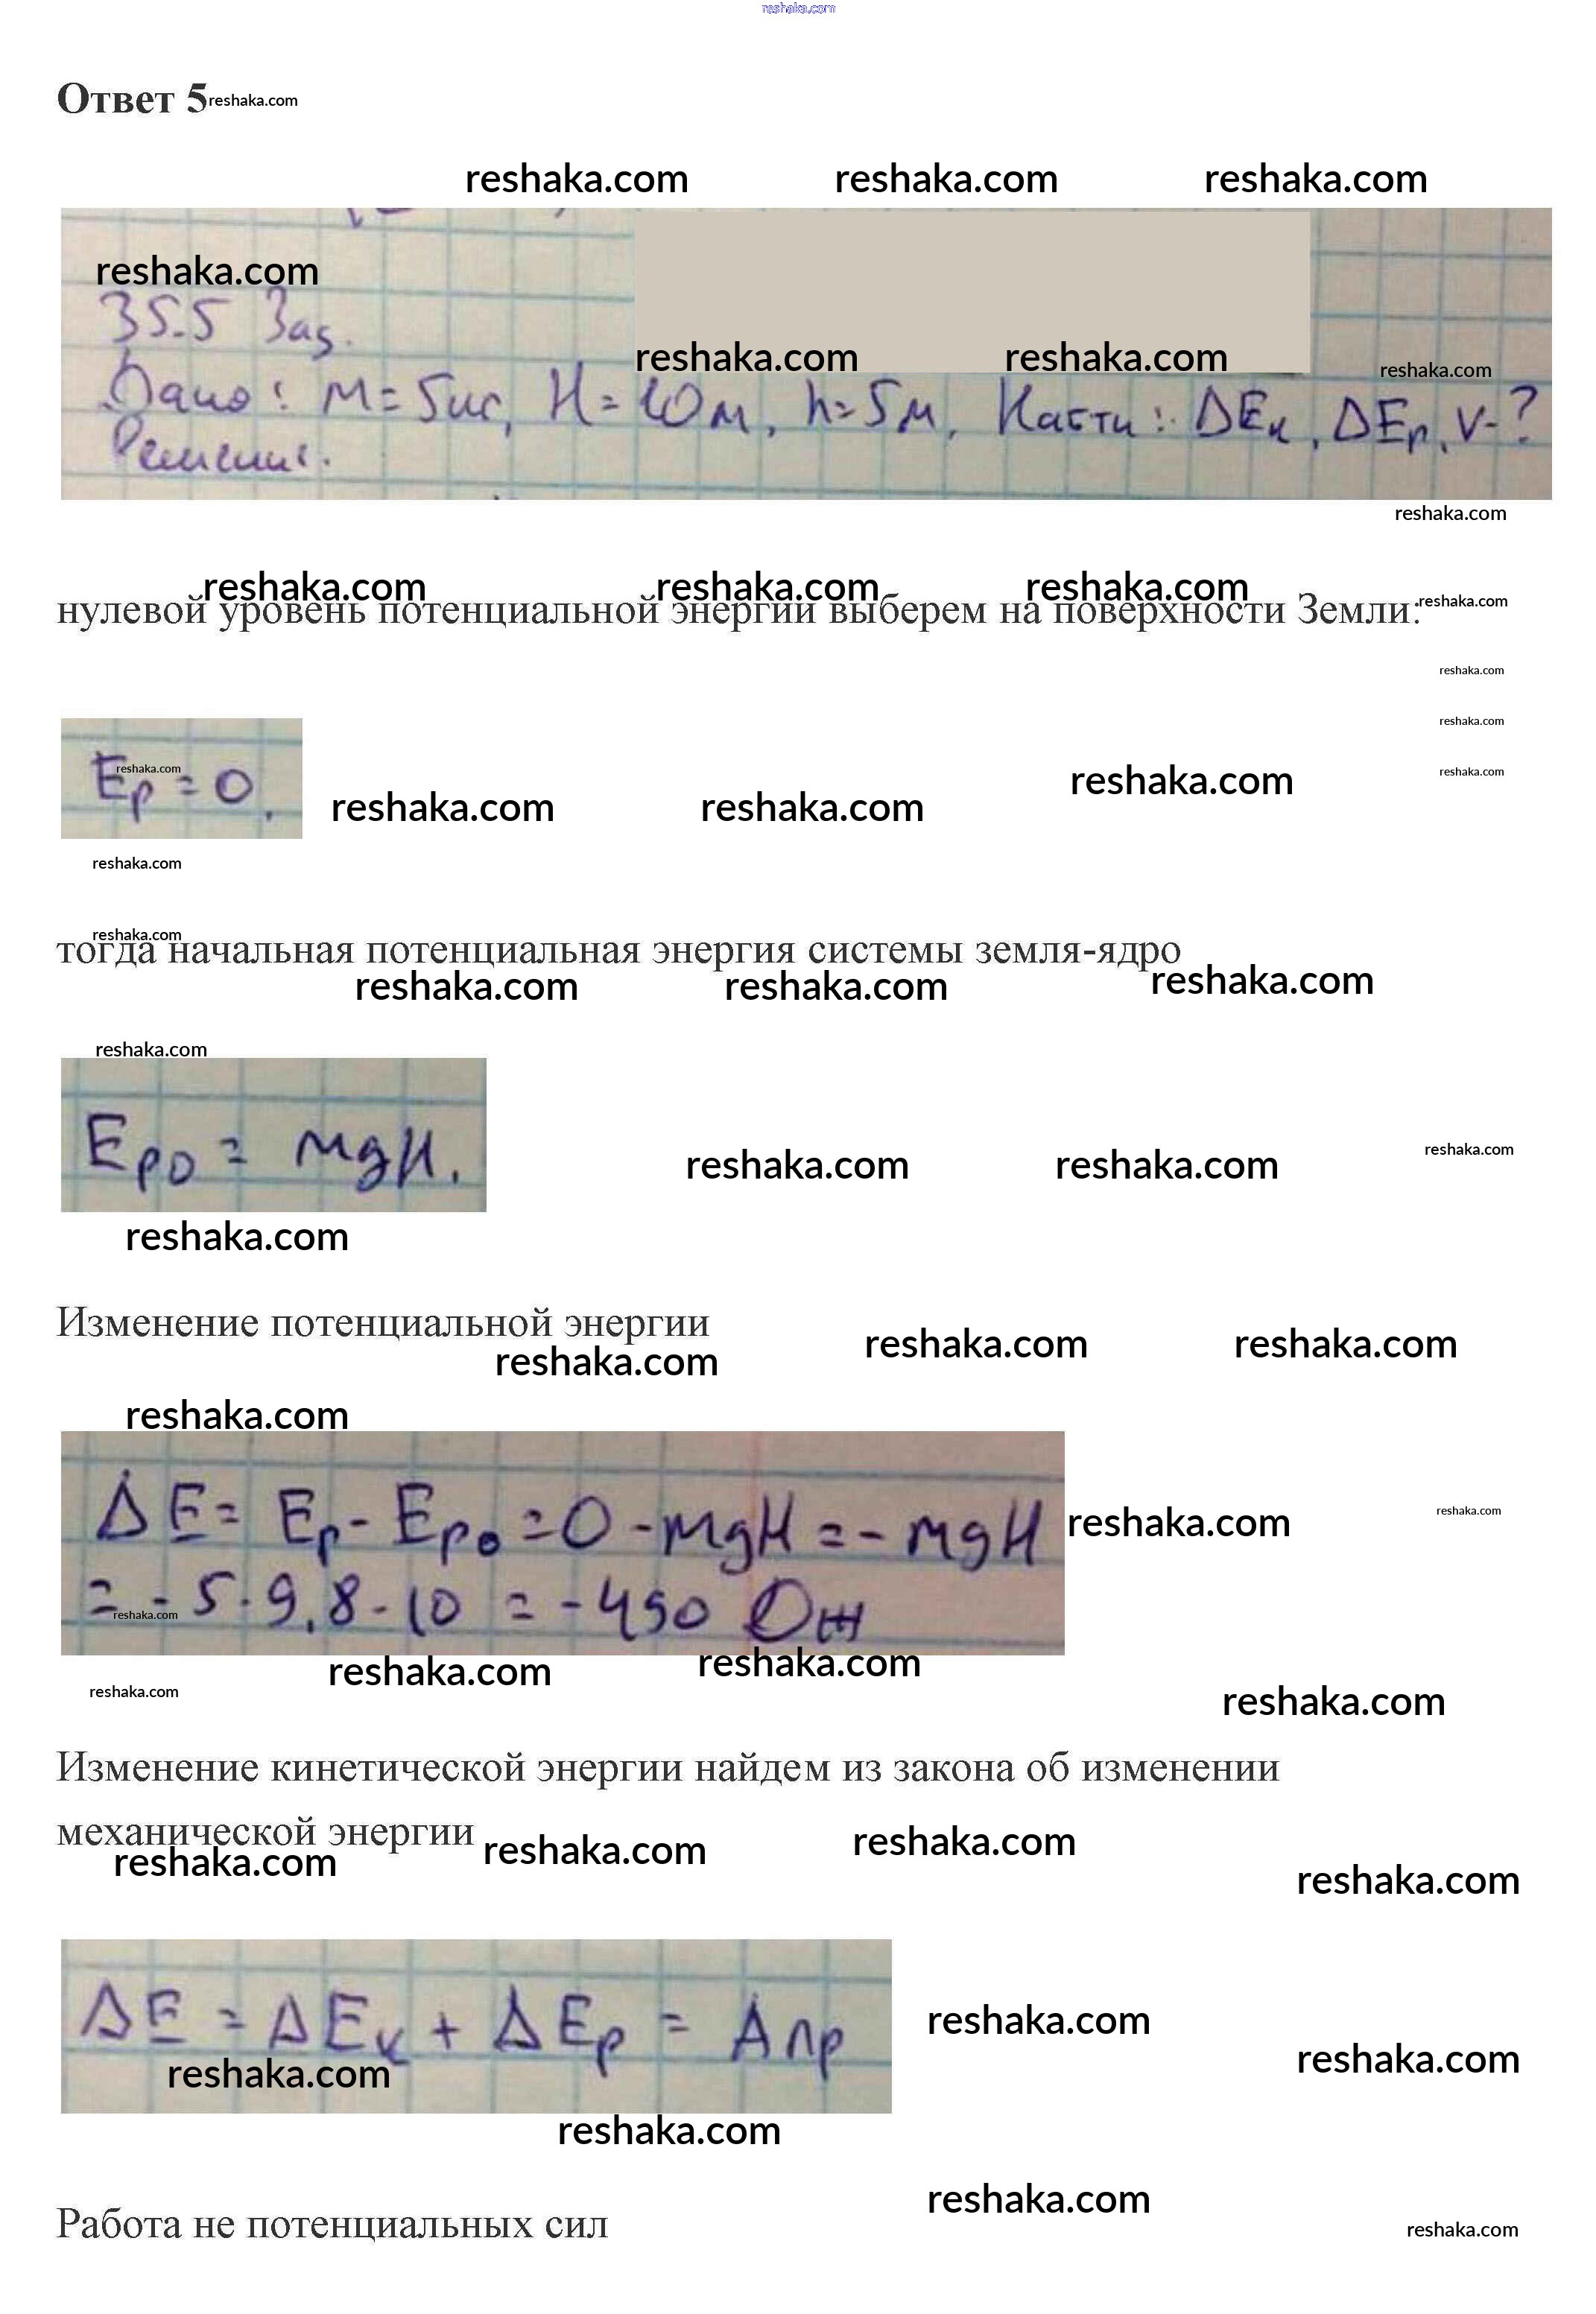 reshaka.com
Ответ 5 reshaka.com
reshaka.com reshaka.com reshaka.com
reshaka.com
35.5 Заg.
reshaka.com reshaka.com reshaka.com
Дано: m = 5 кг, H = 10 м, h = 5 м, Найти: ΔEк, ΔEp, v-?
Решение:
reshaka.com
reshaka.com reshaka.com reshaka.com
нулевой уровень потенциальной энергии выберем на поверхности Земли: reshaka.com
reshaka.com
reshaka.com
Ep = 0, reshaka.com reshaka.com reshaka.com
reshaka.com reshaka.com
reshaka.com
reshaka.com
тогда начальная потенциальная энергия системы земля-ядро
reshaka.com reshaka.com reshaka.com
reshaka.com
Ep0 = mgH.
reshaka.com reshaka.com reshaka.com
reshaka.com
Изменение потенциальной энергии
reshaka.com reshaka.com reshaka.com
reshaka.com
ΔE = Ep - Ep0 = 0 - mgH = - mgH
reshaka.com reshaka.com
= - 5 · 9,8 · 10 = -490 Дж
reshaka.com
reshaka.com reshaka.com
reshaka.com reshaka.com
Изменение кинетической энергии найдем из закона об изменении
механической энергии
reshaka.com reshaka.com reshaka.com
reshaka.com
ΔE = ΔEк + ΔEp = Aпр
reshaka.com reshaka.com
reshaka.com
reshaka.com
reshaka.com
Работа не потенциальных сил
reshaka.com